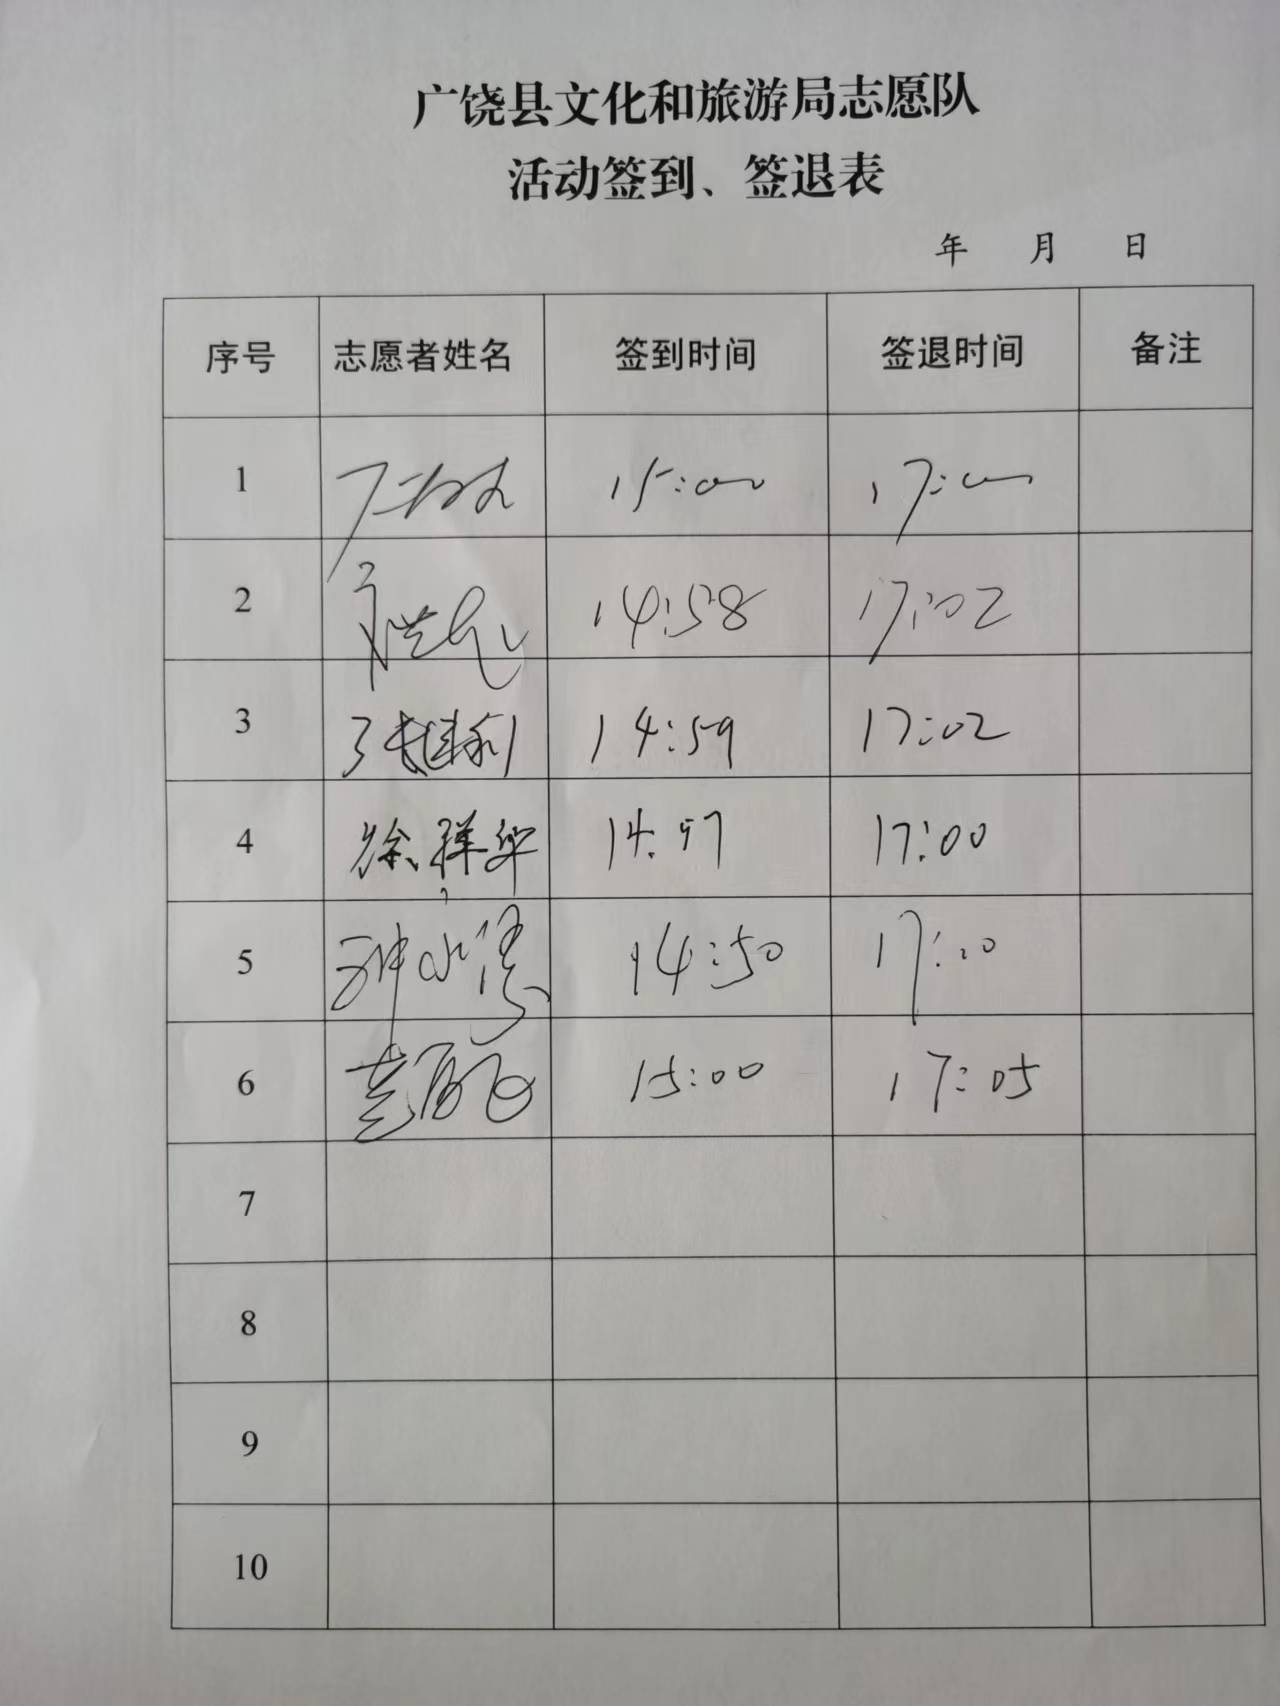 广饶县文化和旅游局志愿队
活动签到、签退表
年 月 日
序号 志愿者姓名 签到时间 签退时间 备注
1 15:00 17:00
2 14:58 17:02
3 张继利 14:59 17:02
4 徐祥华 14:57 17:00
5 14:50 17:10
6 15:00 17:05
7
8
9
10